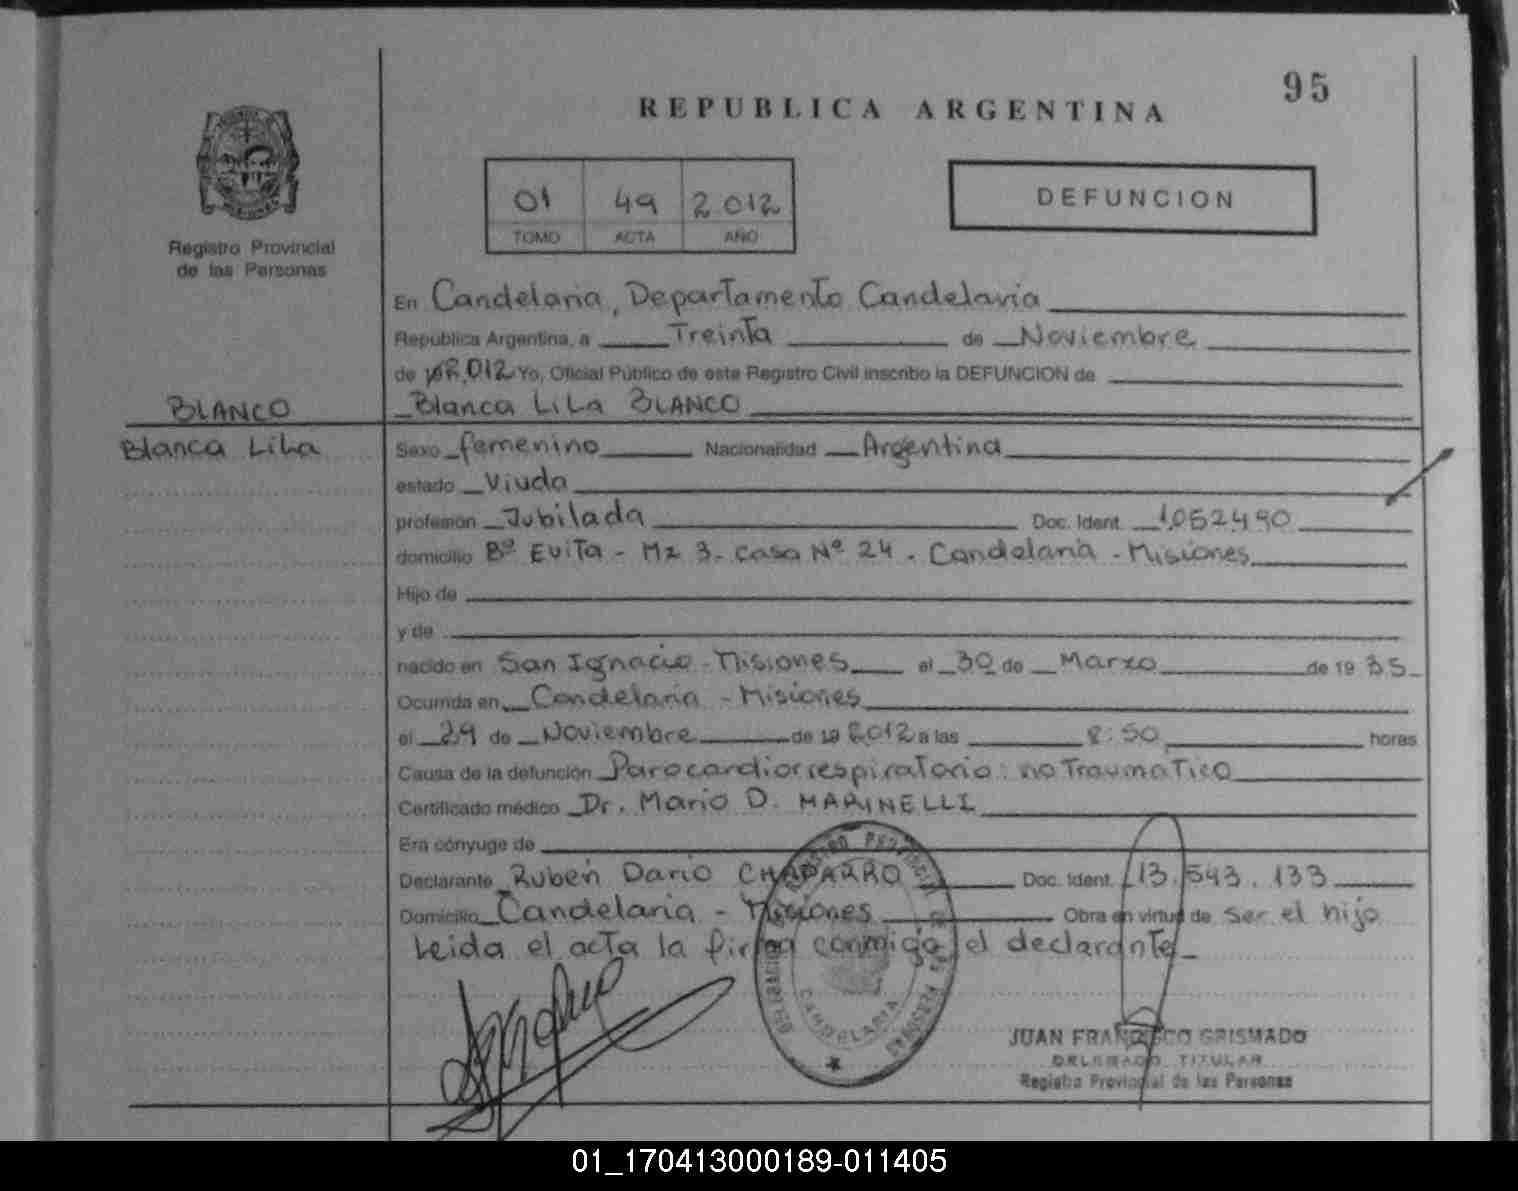 95
REPUBLICA ARGENTINA
01 49 2.012
TOMO ACTA AÑO
DEFUNCION
Registro Provincial
de las Personas
En Candelaria, Departamento Candelaria
República Argentina, a Treinta de Noviembre
de 2.012 Yo, Oficial Público de este Registro Civil inscribo la DEFUNCION de
BLANCO
Blanca Lila BLANCO
Blanca Lila
Sexo femenino Nacionalidad Argentina
estado Viuda
profesión Jubilada Doc. Ident. 1.052.490
domicilio Bº Evita - Mz 3. casa Nº 24. Candelaria - Misiones
Hijo de
y de
nacido en San Ignacio - Misiones el 30 de Marzo de 19 35
Ocurrida en Candelaria - Misiones
el 29 de Noviembre de 19 2.012 a las 8:50 horas
Causa de la defunción Parocardiorrespiratorio: no Traumatico
Certificado médico Dr. Mario D. MARINELLI
Era cónyuge de
Declarante Rubén Dario CHAPARRO Doc. Ident. 13.543.133
Domicilio Candelaria - Misiones Obra en virtud de ser el hijo
Leida el acta la firma conmigo el declarante
REGISTRO PROVINCIAL DE LAS PERSONAS
CANDELARIA
JUAN FRANCISCO GRISMADO
DELEGADO TITULAR
Registro Provincial de las Personas
01_170413000189-011405